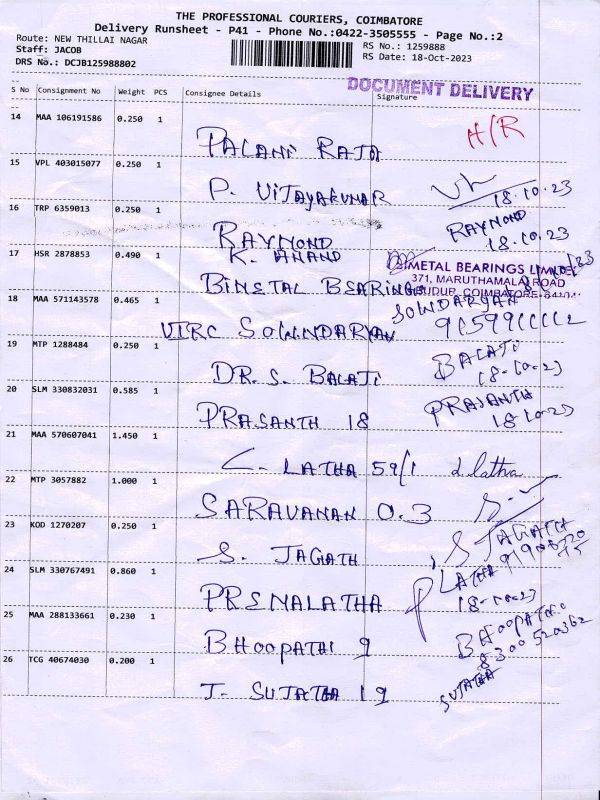 THE PROFESSIONAL COURIERS, COIMBATORE
Delivery Runsheet - P41 - Phone No.:0422-3505555 - Page No.:2
Route: NEW THILLAI NAGAR
Staff: JACOB
DRS No.: DCJB125988802
RS No.: 1259888
RS Date: 18-Oct-2023
DOCUMENT DELIVERY
S No Consignment No Weight PCS Consignee Details Signature
14 MAA 106191586 0.250 1
PALANI RAJA H/R
15 VPL 403015077 0.250 1
P. VIJAYAKUMAR 18.10.23
16 TRP 6359013 0.250 1
RAYMOND RAYMOND
K. ANAND 18.10.23
17 HSR 2878853 0.490 1
BIMETAL BEARINGS
BIMETAL BEARINGS LIMITED
371, MARUTHAMALAI ROAD
COIMBATORE
18 MAA 571143578 0.465 1
SOWNDARYAN
19 MTP 1288484 0.250 1
DR. S. BALAJI BALAJI
18-10-23
20 SLM 330832031 0.585 1
PRASANTH 18 PRASANTH
18-10-23
21 MAA 570607041 1.450 1
C. LATHA 59/1 C. latha
22 MTP 3057882 1.000 1
SARAVANAN 0.3
23 KOD 1270207 0.250 1
S. JAGATH S JAGATH
24 SLM 330767491 0.860 1
PREMALATHA LATHA
18-10-23
25 MAA 288133661 0.230 1
BHOOPATHI 9
8300520362
26 TCG 40674030 0.200 1
J. SUJATHA 19 SUJATHA